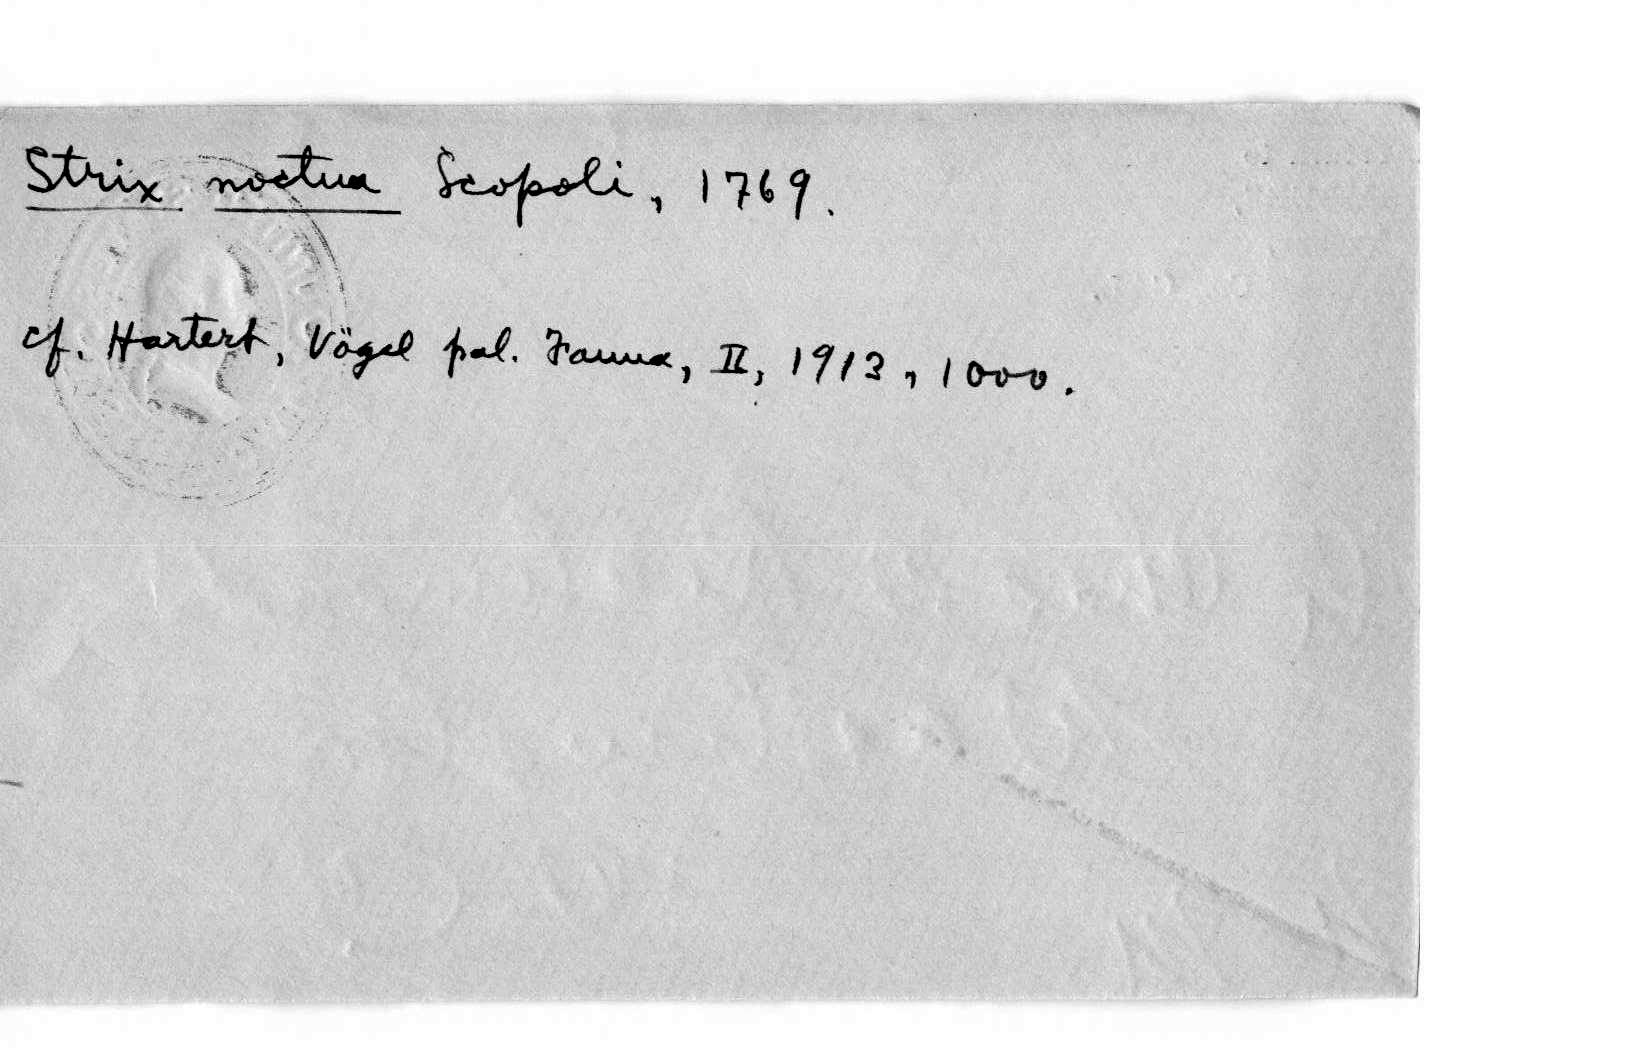 Strix noctua Scopoli, 1769.
cf. Hartert, Vögel pal. Fauna, II, 1913, 1000.